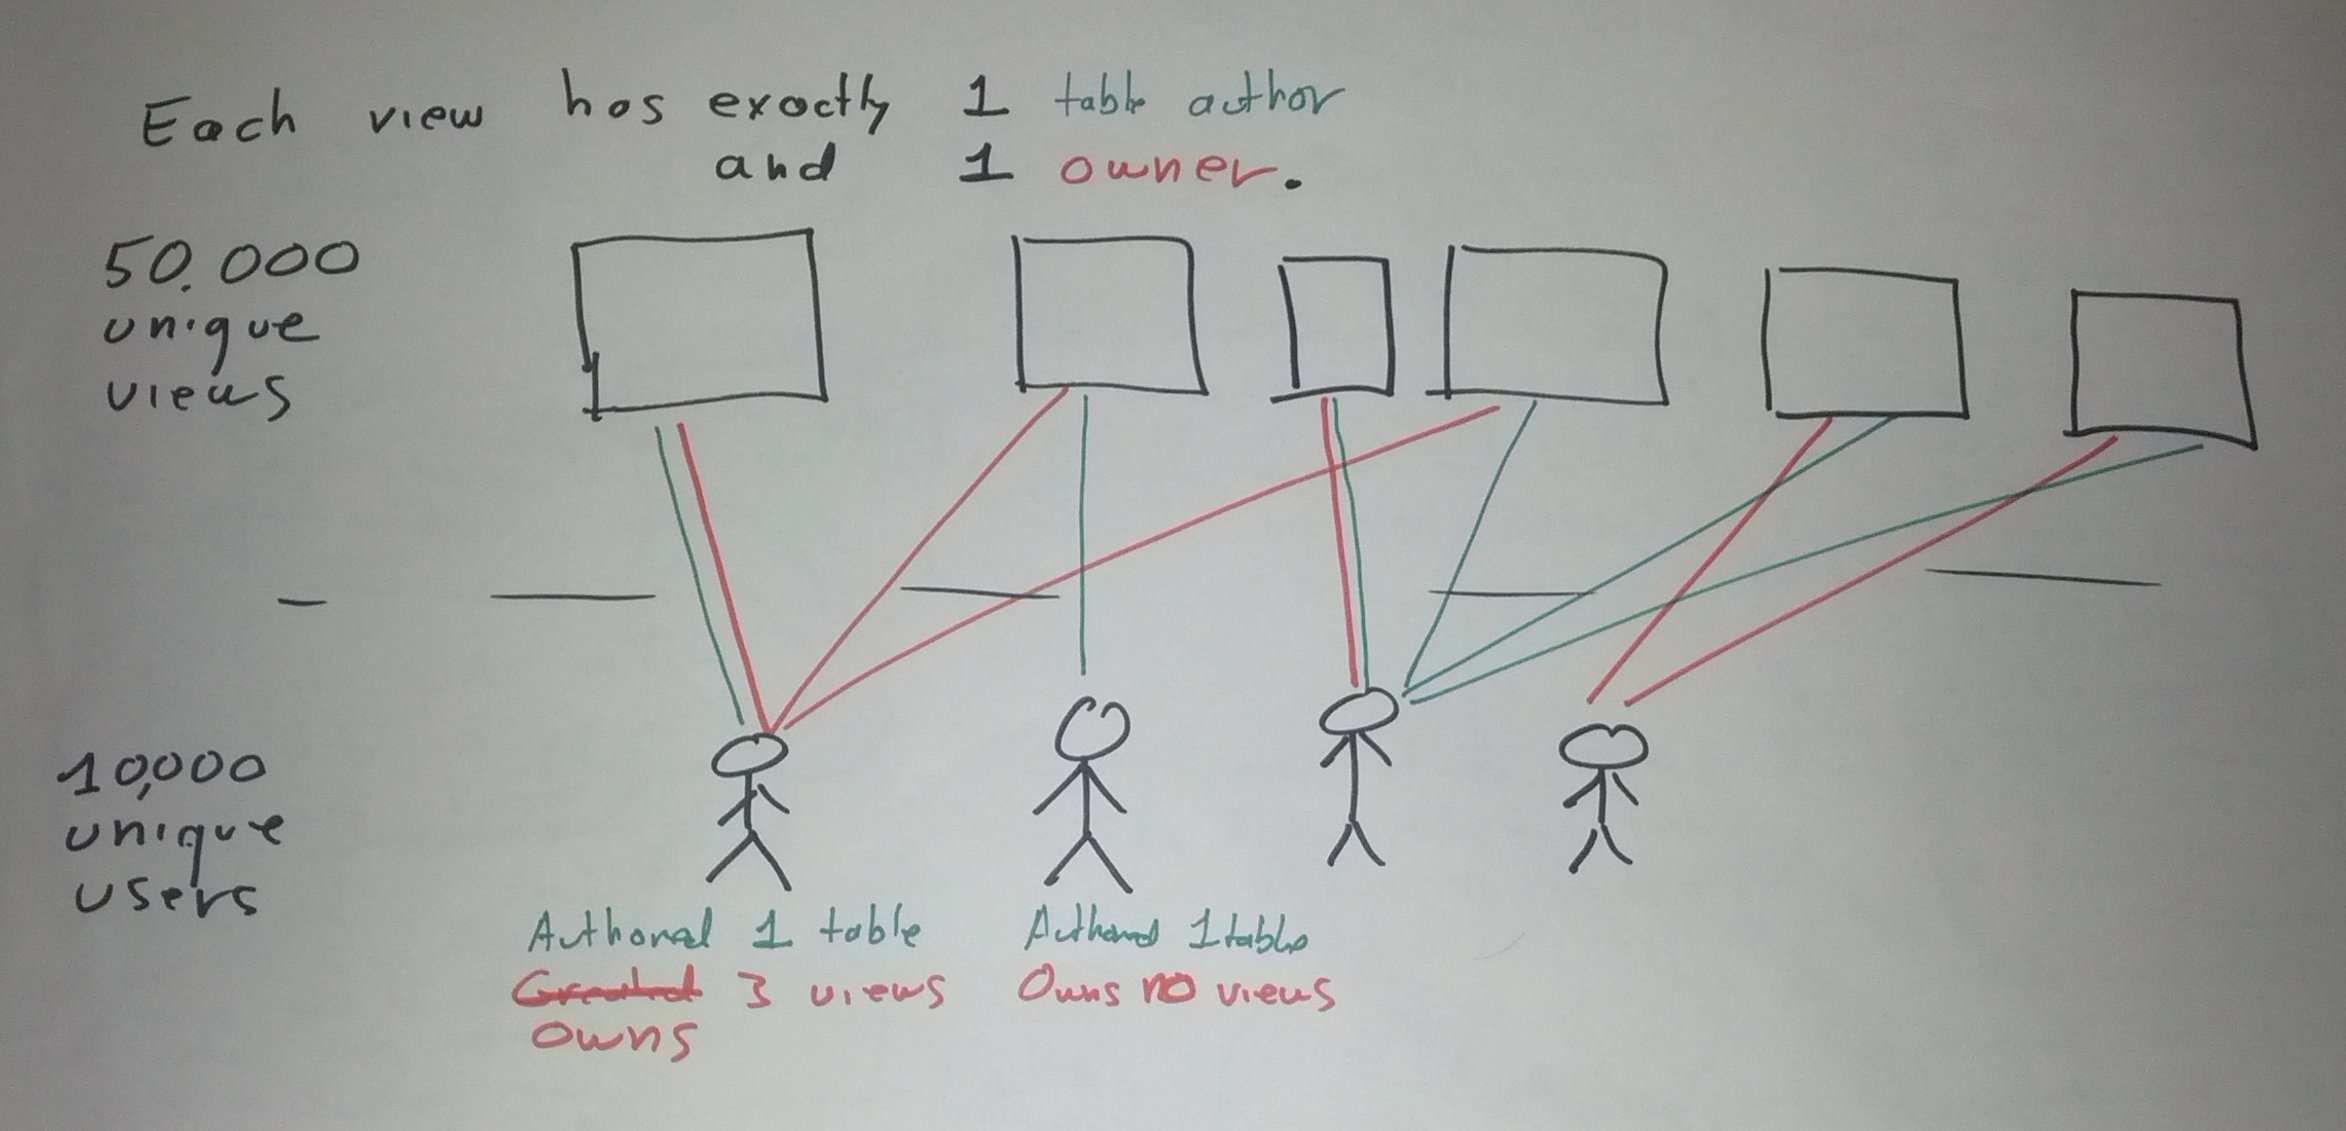 Each view has exactly 1 table author
and 1 owner.
50.000
unique
views
10,000
unique
users
Authored 1 table
Created 3 views
owns
Authored 1 table
Owns no views